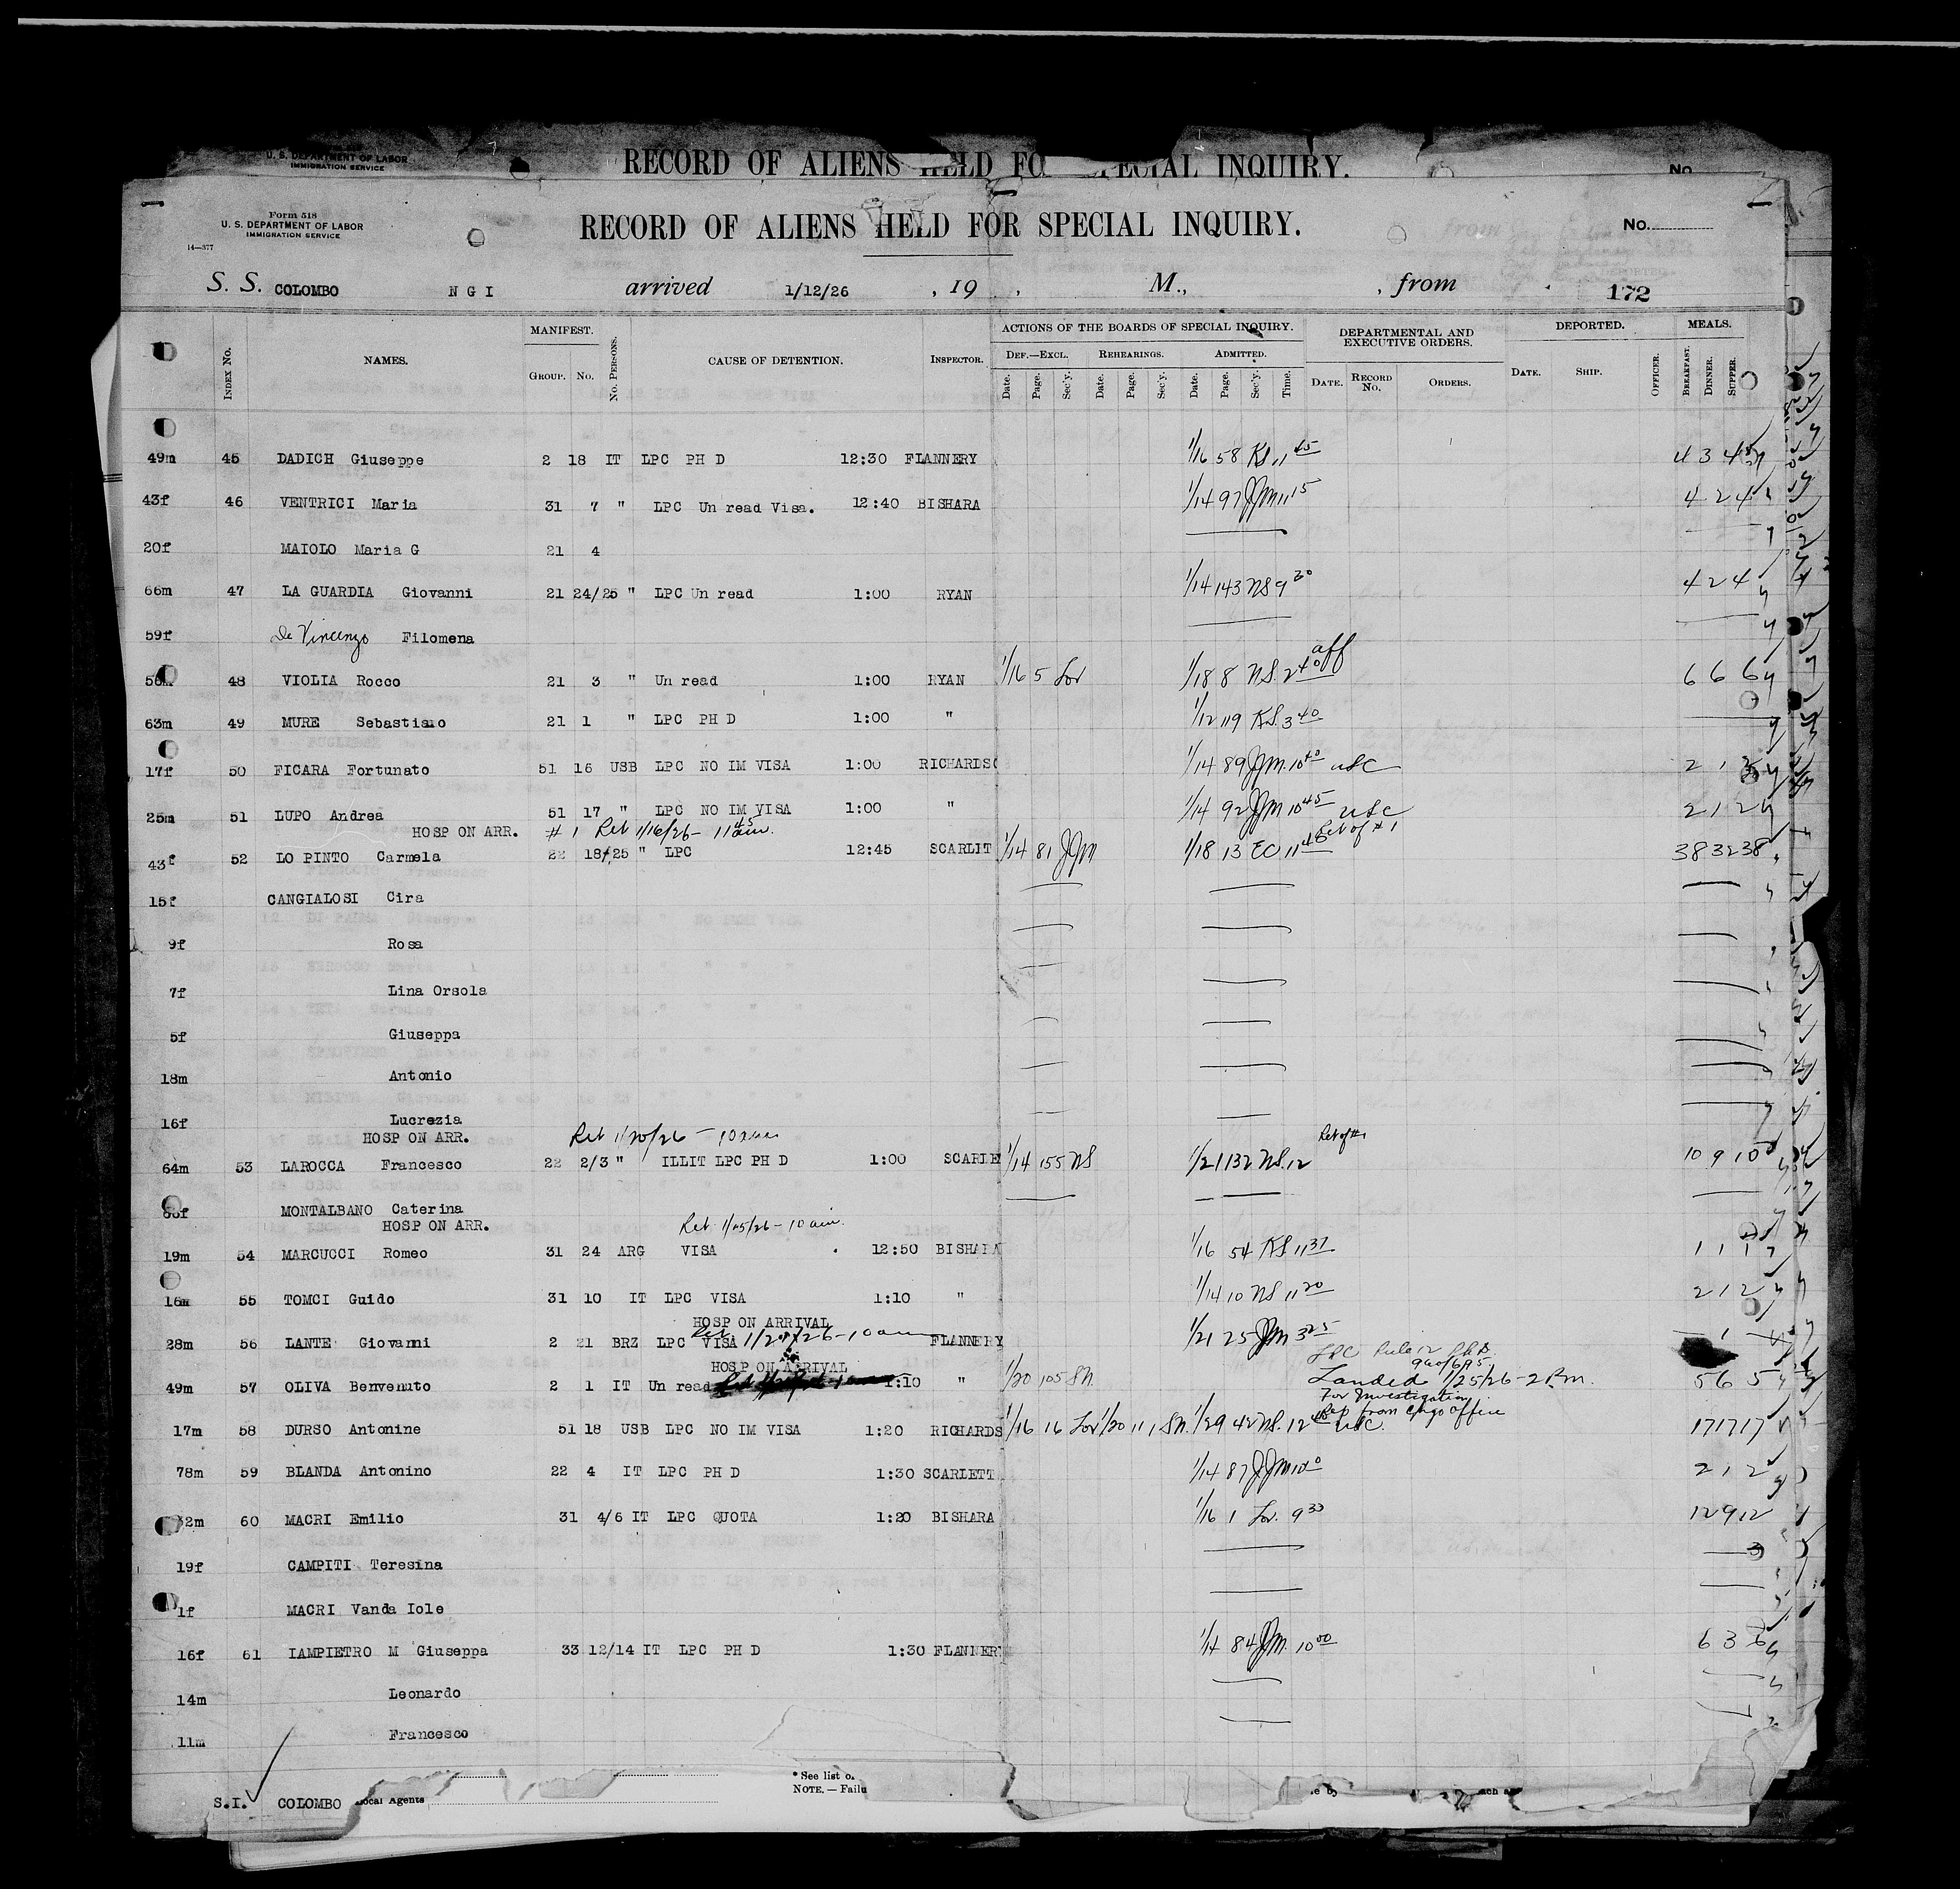 U. S. DEPARTMENT OF LABOR
IMMIGRATION SERVICE
RECORD OF ALIENS HELD FO SPECIAL INQUIRY.
No.
Form 518
U. S. DEPARTMENT OF LABOR
IMMIGRATION SERVICE
14—377
RECORD OF ALIENS HELD FOR SPECIAL INQUIRY.
No.
S. S. COLOMBO N G I arrived 1/12/26 , 19 , M., , from 172
INDEX No. NAMES. MANIFEST. GROUP. No. No. PERSONS. CAUSE OF DETENTION. INSPECTOR. ACTIONS OF THE BOARDS OF SPECIAL INQUIRY. DEPARTMENTAL AND EXECUTIVE ORDERS. DEPORTED. MEALS.
DEF.—EXCL. REHEARINGS. ADMITTED.
Date. Page. Sec'y. Date. Page. Sec'y. Date. Page. Sec'y. Time. DATE. RECORD No. ORDERS. DATE. SHIP. OFFICER. BREAKFAST. DINNER. SUPPER.
49m 45 DADICH Giuseppe 2 18 IT LPC PH D 12:30 FLANNERY 1/16 58 KS 11 45 4 3 4
43f 46 VENTRICI Maria 31 7 " LPC Un read Visa. 12:40 BISHARA 1/14 97 JJM 11 15 4 2 4
20f MAIOLO Maria G 21 4
66m 47 LA GUARDIA Giovanni 21 24/25 " LPC Un read 1:00 RYAN 1/14 143 NS 9 30 4 2 4
59f De Vincenzo Filomena
48 VIOLIA Rocco 21 3 " Un read 1:00 RYAN 1/16 5 Lor 1/18 8 NS. 2 40 aff 6 6 6
63m 49 MURE Sebastiano 21 1 " LPC PH D 1:00 " 1/12 119 KS. 3 40
17f 50 FICARA Fortunato 51 16 USB LPC NO IM VISA 1:00 RICHARDSO 1/14 89 JJM. 10 40 USC 2 1
25m 51 LUPO Andrea 51 17 " LPC NO IM VISA 1:00 " 1/14 92 JJM 10 45 USC 2 1 2
HOSP ON ARR. # 1 Ret 1/16/26 - 11 45 am. Ret of # 1
43f 52 LO PINTO Carmela 22 18/25 " LPC 12:45 SCARLIT 1/14 81 JJM 1/18 13 EO 11 45 38 32 38
15f CANGIALOSI Cira
9f Rosa
7f Lina Orsola
5f Giuseppa
18m Antonio
16f Lucrezia
HOSP ON ARR. Ret 1/20/26 - 10 am Ret of #1
64m 53 LAROCCA Francesco 22 2/3 " ILLIT LPC PH D 1:00 SCARLE 1/14 155 NS 1/21 132 NS. 12 10 9 10
MONTALBANO Caterina
HOSP ON ARR. Ret 1/15/26 - 10 am.
19m 54 MARCUCCI Romeo 31 24 ARG VISA 12:50 BISHARA 1/16 54 KS 11 37 1 1 1
16m 55 TOMCI Guido 31 10 IT LPC VISA 1:10 " 1/14 10 NS 11 20 2 1 2
HOSP ON ARRIVAL
28m 56 LANTE Giovanni 2 21 BRZ LPC VISA FLANNERY 1/21 25 JJM 3 25 1
HOSP ON ARRIVAL LPC Rule 12
49m 57 OLIVA Benvenuto 2 1 IT Un read 1:10 " 1/20 105 SN Landed 1/25/26 - 2 P.m. 5 6 5
For Investigation
Rep from office
17m 58 DURSO Antonine 51 18 USB LPC NO IM VISA 1:20 RICHARDS 1/16 16 Lor 1/20 111 SN. 1/29 42 NS. 12 45 USC. 17 17 17
78m 59 BLANDA Antonino 22 4 IT LPC PH D 1:30 SCARLETT 1/14 87 JJM 2 1 2
32m 60 MACRI Emilio 31 4/6 IT LPC QUOTA 1:20 BISHARA 1/16 1 Lor. 9 33 12 9 12
19f CAMPITI Teresina
1f MACRI Vanda Iole
16f 61 IAMPIETRO M Giuseppa 33 12/14 IT LPC PH D 1:30 FLANNER 1/14 84 JJM. 10 00 6 3 6
14m Leonardo
11m Francesco
* See list o
NOTE.—Failu
S.I. COLOMBO Local Agents